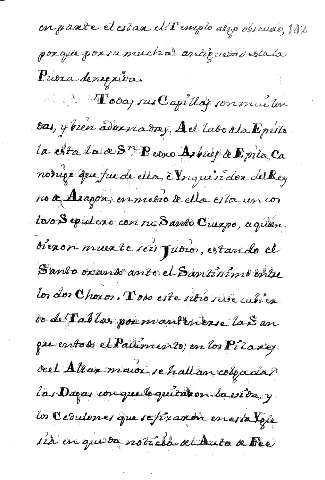 en parte el estar el Templo algo obscuro, 132
porque por su mucha antiguedad esta la
Piedra denegrida.
Todas sus Capillas son mui lin
das, y bien adornadas, A el lado de la Episto
la esta la de Sn. Pedro Arbués de Epila Ca
nonigo que fue de ella, è Ynquisidor del Rey
no de Aragon, en medio de ella esta un cos
toso Sepulcro con su Santo Cuerpo, a quien
dieron muerte seis Judios, estando el
Santo orando ante el Santisimo entre
los dos Choros. Todo este sitio se ve cubier
to de Tablas por mantenerse la San
gre en todo el Pavimento; en los Pilares
de el Altar maior se hallan colgadas
las Dagas con que le quitaron la vida, y
los Cedulones que se fixaron en esta Ygle
sia en que da noticia del Auto de Fee